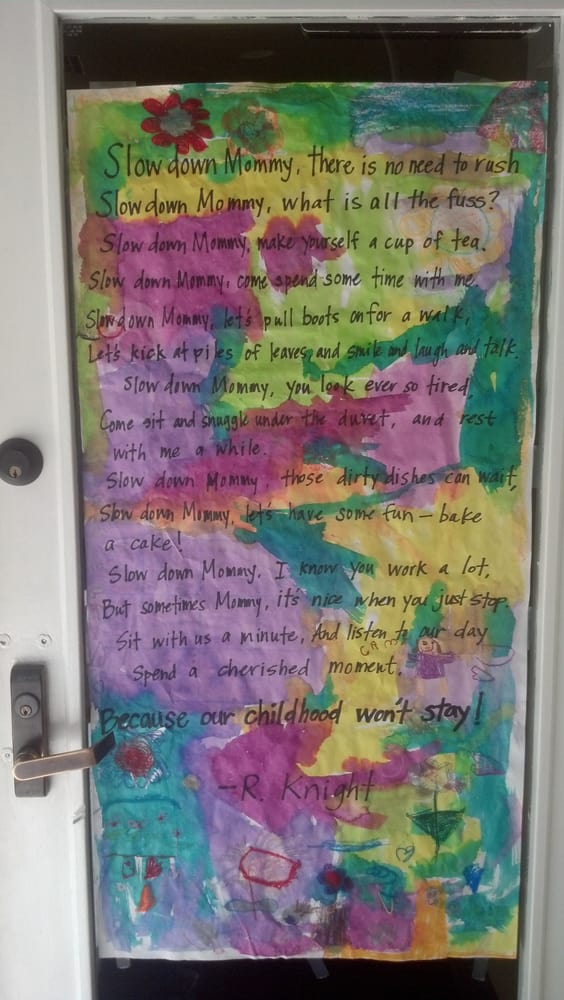 Slow down Mommy, there is no need to rush
Slow down Mommy, what is all the fuss?
Slow down Mommy, make yourself a cup of tea.
Slow down Mommy, come spend some time with me.
Slow down Mommy, let's pull boots on for a walk,
Let's kick at piles of leaves, and smile and laugh and talk.
Slow down Mommy, you look ever so tired,
Come sit and snuggle under the duvet, and rest
with me a while.
Slow down Mommy, those dirty dishes can wait,
Slow down Mommy, let's have some fun – bake
a cake!
Slow down Mommy, I know you work a lot,
But sometimes Mommy, it's nice when you just stop.
Sit with us a minute, And listen to our day
Spend a cherished moment,
Because our childhood won't stay!
–R. Knight